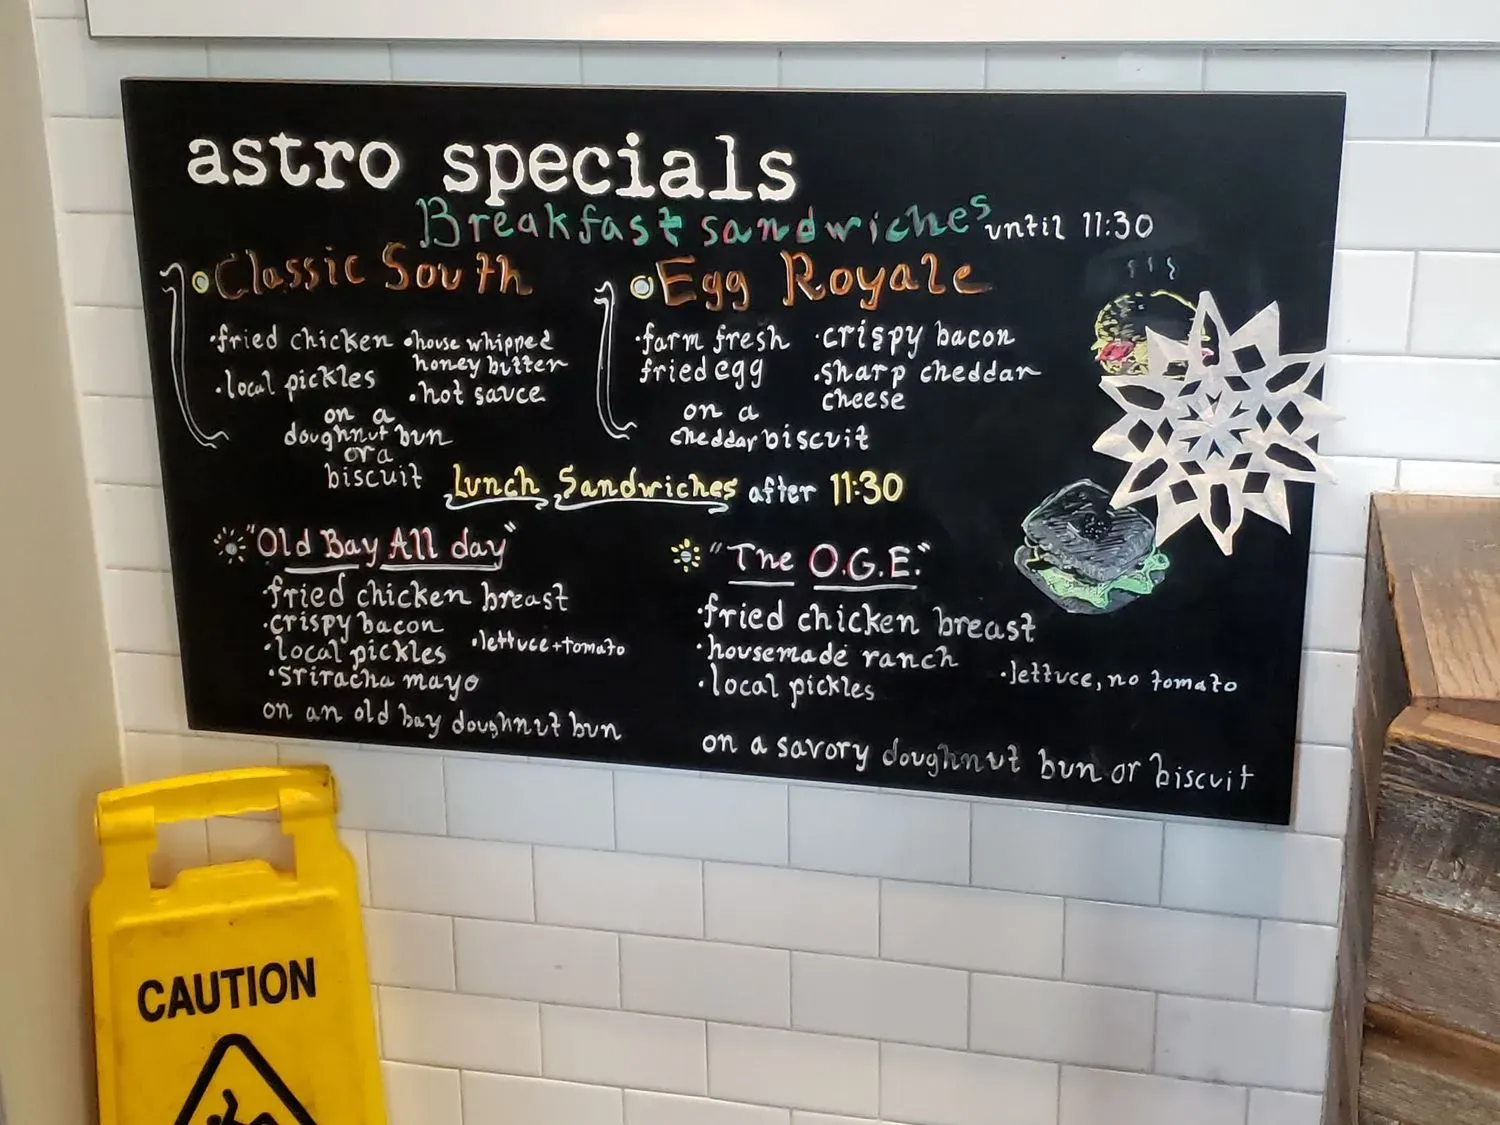 astro specials
Breakfast sandwiches until 11:30
Classic South
·fried chicken
·local pickles
·house whipped
honey butter
·hot sauce
on a
doughnut bun
or a
biscuit
Egg Royale
·farm fresh
fried egg
·crispy bacon
·sharp cheddar
cheese
on a
cheddar biscuit
Lunch Sandwiches after 11:30
"Old Bay All day"
·fried chicken breast
·crispy bacon
·local pickles
·sriracha mayo
·lettuce+tomato
on an old bay doughnut bun
"The O.G.E."
·fried chicken breast
·housemade ranch
·local pickles
·lettuce, no tomato
on a savory doughnut bun or biscuit
CAUTION